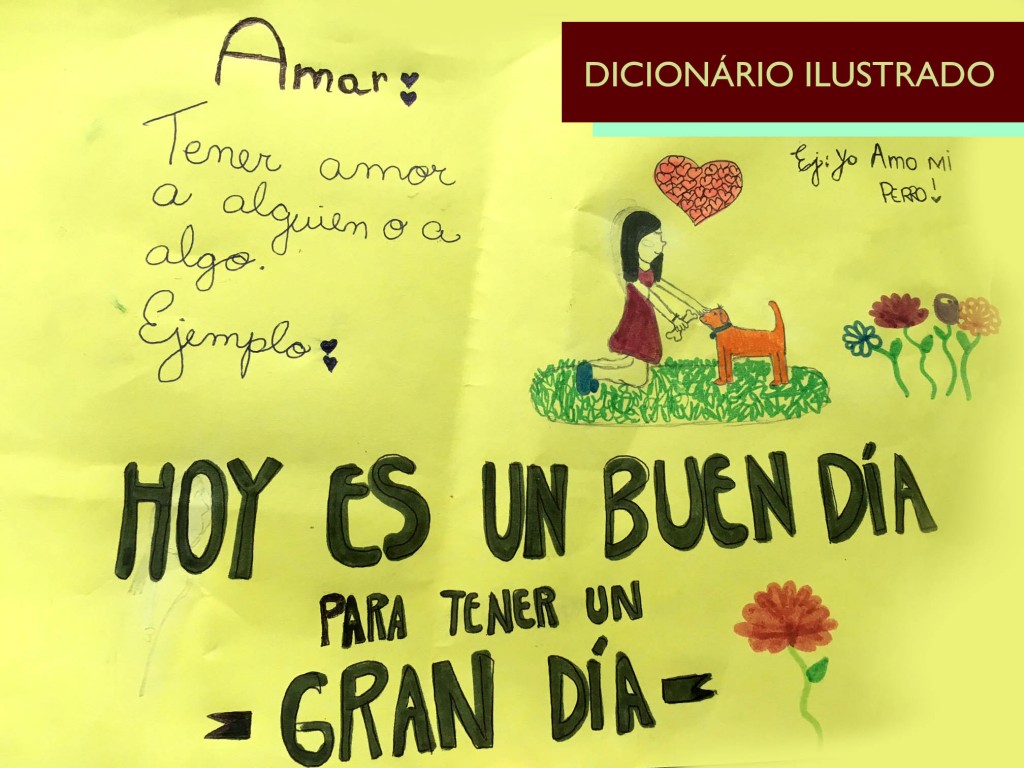 DICIONÁRIO ILUSTRADO
Amar:
Tener amor
a alguien o a
algo.
Ejemplo:
Ej: Yo Amo mi
PERRO!
HOY ES UN BUEN DÍA
PARA TENER UN
- GRAN DÍA -